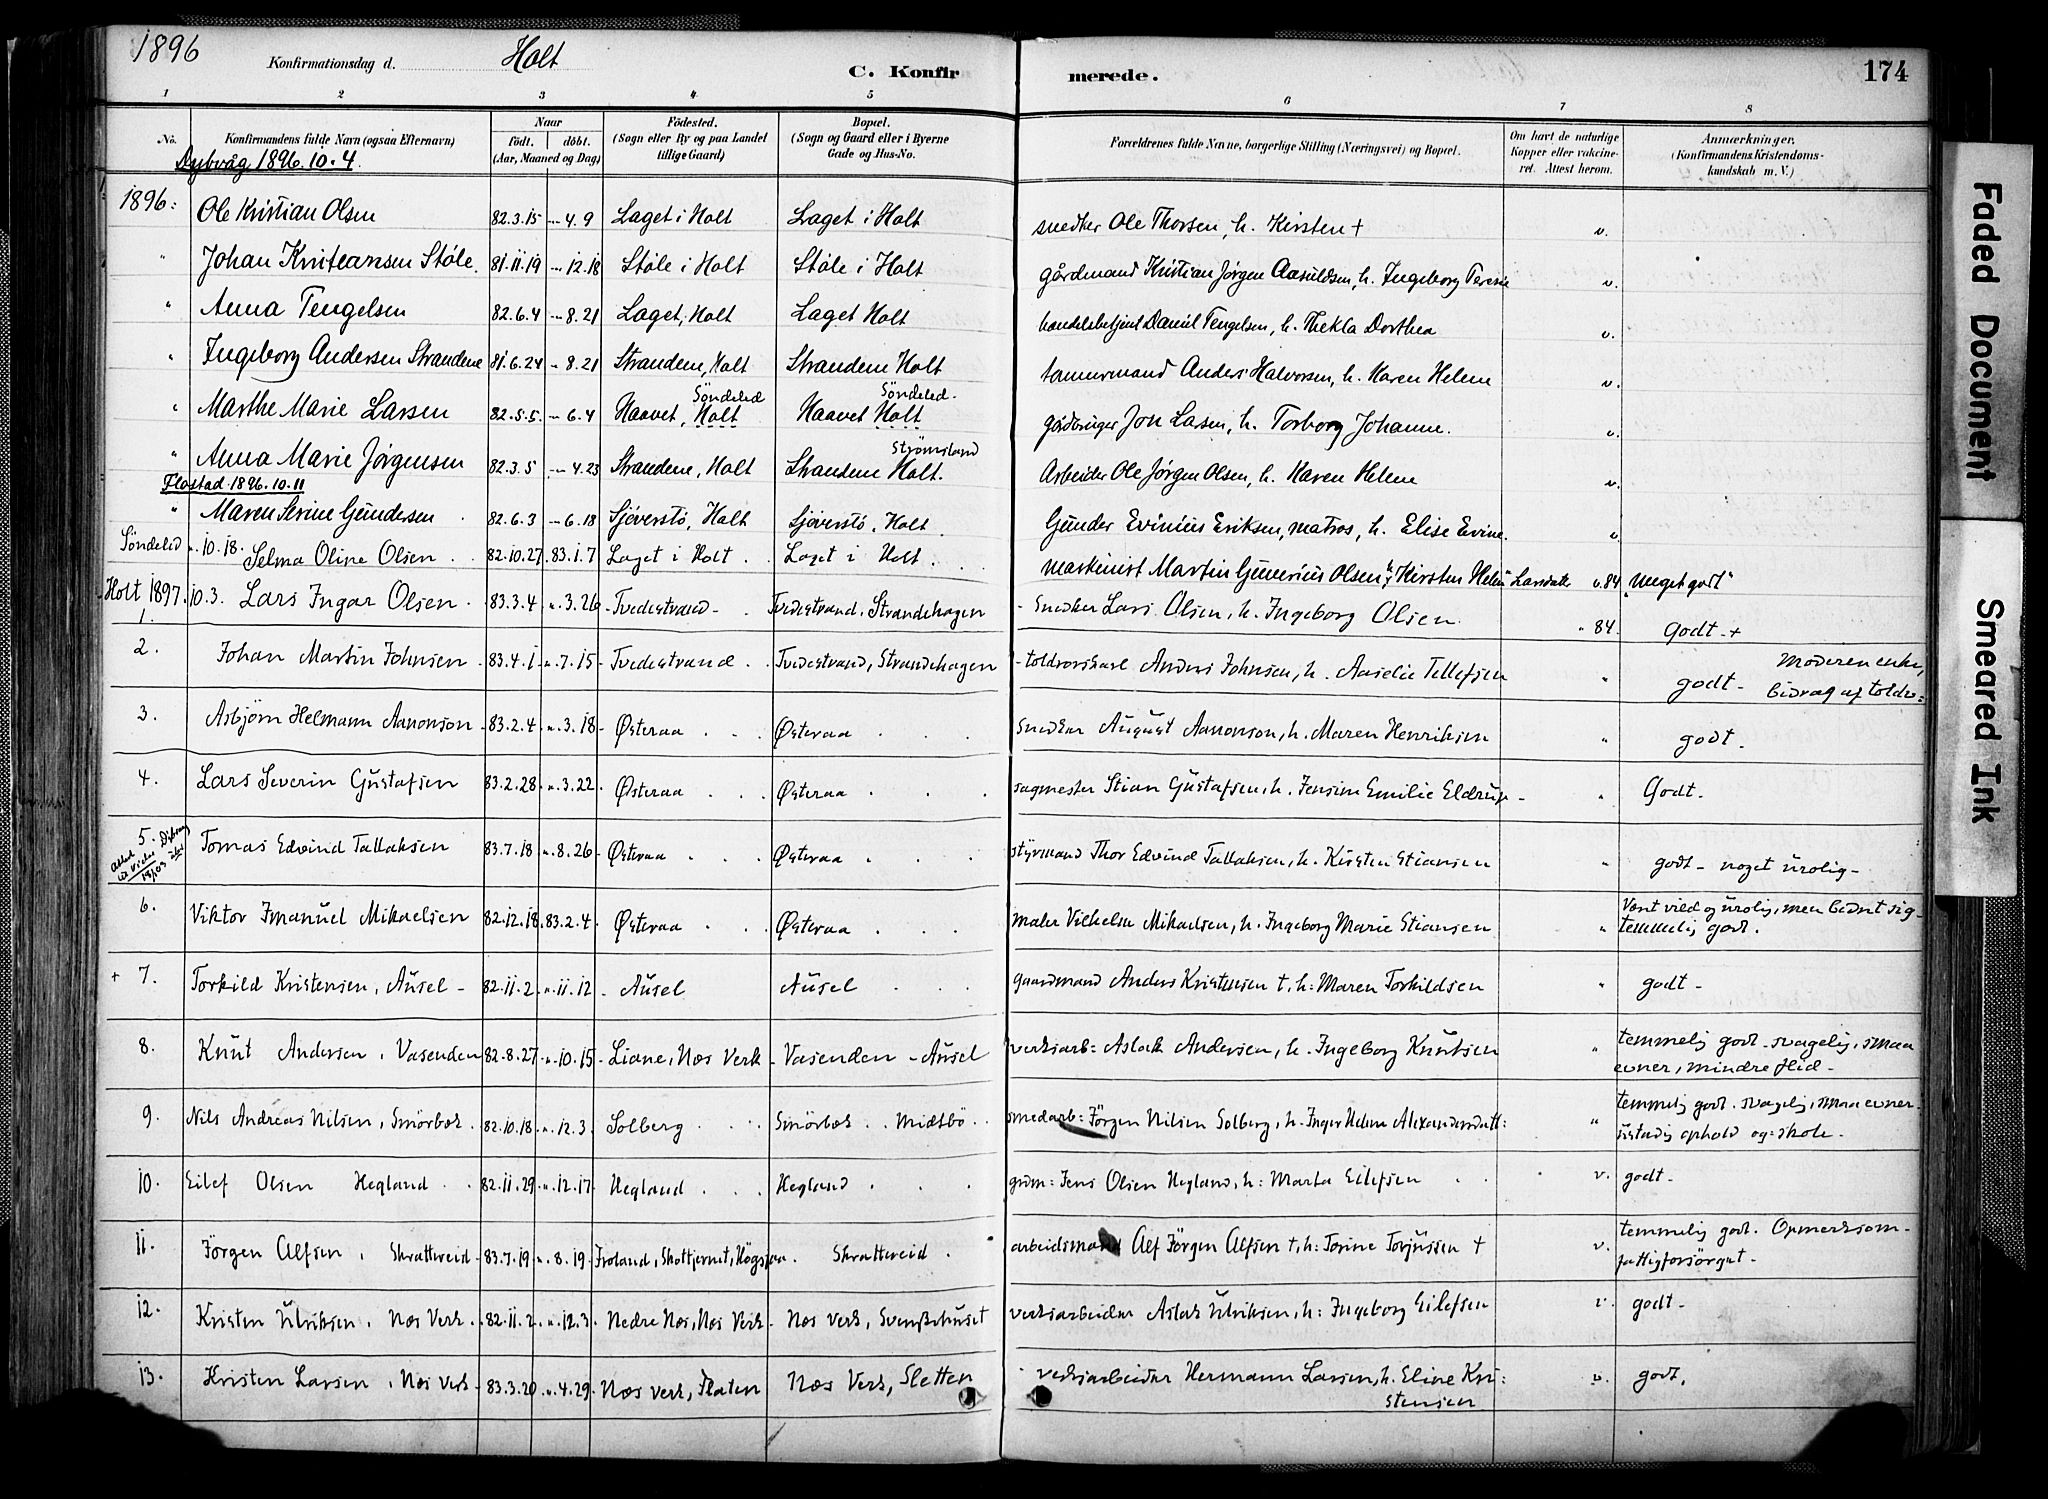 1896 Konfirmationsdag d. Holt C. Konfirmerede. 174
1 2 3 4 5 6 7 8
No. Konfirmandens fulde Navn (ogsaa Efternavn) Naar Födt. döbt. (Aar, Maaned og Dag) Födested. (Sogn eller By og paa Landet tillige Gaard) Bopæl. (Sogn og Gaard eller i Byerne Gade og Hus-No. Forældrenes fulde Navne, borgerlige Stilling (Næringsvei) og Bopæl. Om havt de naturlige Kopper eller vakcineret. Attest herom. Anmærkninger. (Konfirmandens Kristendomskundskab m. V.)
Dybvåg 1896.10.4.
1896: Ole Kristian Olsen 82.3.15 -- 4.9 Laget i Holt Laget i Holt snedker Ole Thorsen, h. Kirsten + v.
" Johan Kristeansen Ståle. 81.11.19 -- 12.18 Ståle i Holt Ståle i Holt gårdmand Kristian Jørgen Aasuldsen, h. Ingeborg Teresie v.
" Anna Tengelsen 82.6.4 -- 8.21 Laget, Holt Laget Holt handelsbetjent Daniel Tengelsen, h. Thekla Dorthea v.
" Ingeborg Andersen Strandene 81.6.24 - 8.21 Strandene, Holt Strandene Holt tømmermand Anders Halvorsen, h. Karen Helene v.
Söndeled Söndeled.
" Marthe Marie Larsen 82.5.5. -- 6.4 Haavet, Holt Haavet Holt gårdbruger Jon Larsen, h. Torborg Johanne. v.
Strømsland
" Anna Marie Jørgensen 82.3.5 -- 4.23 Strandene, Holt Strandene Holt. Arbeider Ole Jørgen Olsen, h. Karen Helene v.
Flostad 1896.10.11
" Maren Serine Gundersen 82.6.3 -- 6.18 Sjöverstö, Holt Sjöverstö, Holt. Gunder Evinius Eriksen, matros, h. Elise Evine. v.
Söndeled ". 10.18. Selma Oline Olsen 82.10.27. 83.1.7 Laget i Holt Laget i Holt. maskinist Martin Gunerius Olsen, h. Kirsten Helene Larsdatt. v. 84 "meget godt"
Holt 1897. 10.3. Lars Ingar Olsen 83.3.4 ". 3.26 Tvedestrand Tvedestrand, Strandehagen Snedker Lars Olsen, h. Ingeborg Olsen " 84. Godt +
1.
2. Johan Martin Johnsen 83.4.1 ". 7.15 Tvedestrand Tvedestrand, Strandehagen toldrorskarl Anders Johnsen, h. Aaselie Tellefsen " godt - Moderen enke,
bidrag af toldv:
3. Asbjørn Helmann Aanonson 83.2.4 ". 3.18 Østeraa Østeraa Snedker August Aanonson, h. Maren Henriksen " godt.
4. Lars Severin Gustafsen 83.2.28 ". 3.22 Østeraa Østeraa sagmester Stian Gustafsen, h. Jensine Emilie Eldrup " Godt.
5. Tomas Edvind Tallaksen 83.7.18 ". 8.26 Østeraa Østeraa styrmand Thor Edvind Tallaksen, h. Kirsten Stiansen " godt - noget urolig -
6. Viktor Imanuel Mikaelsen 82.12.18. 83.2.4 Østeraa Østeraa maler Vilhelm Mikaelsen, h. Ingeborg Marie Stiansen " Været vild og urolig, men bednt sig -
temmelig godt.
+ 7. Torkild Kristensen, Ausel - 82.11.2. ". 11.12 Ausel Ausel gaardmand Anders Kristensen +, h: Maren Torkildsen " godt -
8. Knut Andersen, Vasenden 82.8.27. ". 10.15 Liane, Næs Verk Vasenden - Ausel verksarb: Aslak Andersen, h. Ingeborg Knutsen " temmelig godt - svagelig, smaa
evner, mindre flid -
9. Nils Andreas Nilsen, Smörbæk 82.10.18 ". 12.3. Solberg Smörbæk Midtbö smedarb: Jörgen Nilsen Solberg, h. Inger Helene Alexandersdatt: " temmelig godt. svagelig, smaa evner
ustadig ophold og skole.
10. Eilef Olsen Hegland 82.11.29 ". 12.17 Hegland Hegland gdm: Jens Olsen Hegland, h: Marta Eilefsen v. godt.
11. Jörgen Alfsen, Skrattereid 83.7.19 ". 8.19 Froland, Skottjernet, Högsjaa. Skrattereid. arbeidsmand Alf Jörgen Alfsen +, h: Torine Torjussen + v. temmelig godt. Opmerksom -
fattigforsörget -
12. Kristen Ulriksen, Næs Verk 82.11.2. ". 12.3 Nedre Næs, Næs Verk Næs Verk, Svenskehuset verksarbeider Aslak Ulriksen, h: Ingeborg Eilefsen v. godt -
13. Kristen Larsen, Næs Verk 83.3.20 ". 4.29 Næs verk, Flaten Næs Verk, Sletten verksarbeider Hermann Larsen, h. Eline Kri:
stensen v. godt.
Faded Document
Smeared Ink